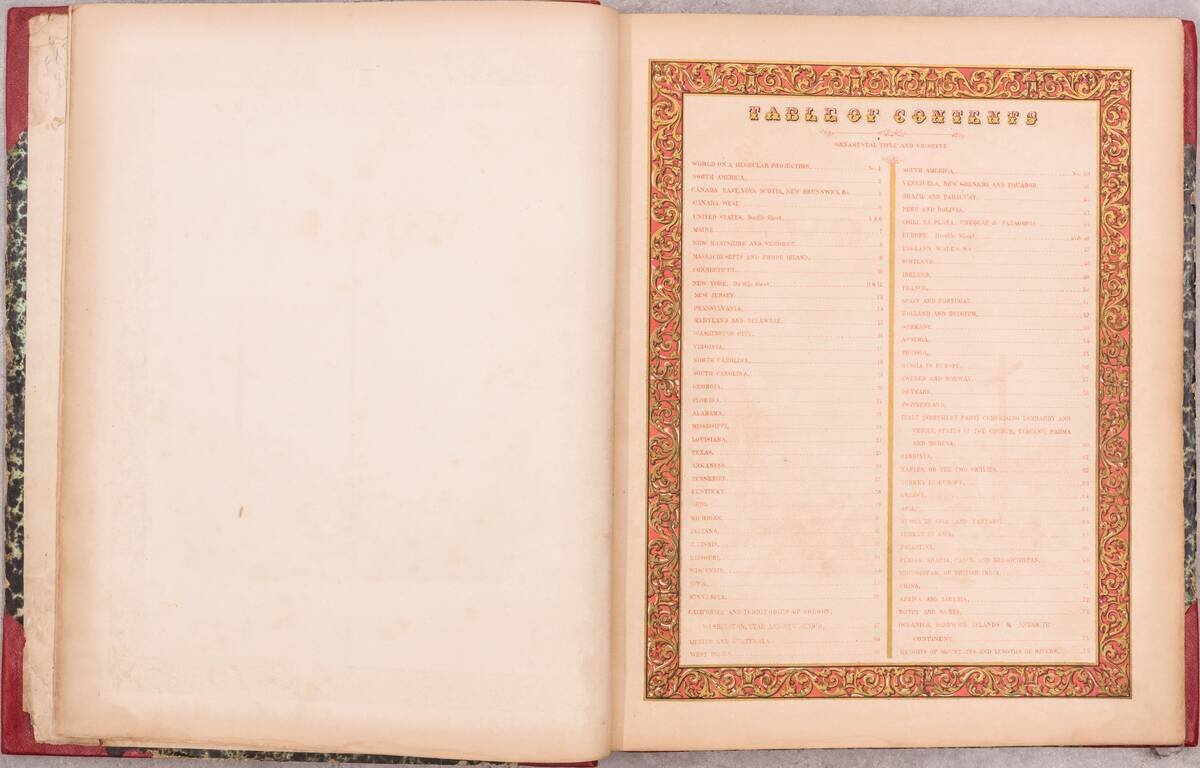 TABLE OF CONTENTS
ORNAMENTAL TITLE AND VIGNETTE
WORLD ON A GLOBULAR PROJECTION, No. 1
NORTH AMERICA, 2
CANADA EAST, NOVA SCOTIA, NEW BRUNSWICK &c. 3
CANADA WEST, 4
UNITED STATES, Double Sheet. 5 & 6
MAINE 7
NEW HAMPSHIRE AND VERMONT, 8
MASSACHUSETTS AND RHODE ISLAND, 9
CONNECTICUT, 10
NEW YORK, Double Sheet. 11 & 12
NEW JERSEY, 13
PENNSYLVANIA, 14
MARYLAND AND DELAWARE, 15
WASHINGTON CITY, 16
VIRGINIA, 17
NORTH CAROLINA, 18
SOUTH CAROLINA, 19
GEORGIA, 20
FLORIDA, 21
ALABAMA, 22
MISSISSIPPI, 23
LOUISIANA, 24
TEXAS, 25
ARKANSAS, 26
TENNESSEE, 27
KENTUCKY, 28
OHIO, 29
MICHIGAN, 30
INDIANA, 31
ILLINOIS, 32
MISSOURI, 33
WISCONSIN, 34
IOWA, 35
MINNESOTA, 36
CALIFORNIA AND TERRITORIES OF OREGON,
WASHINGTON, UTAH AND NEW MEXICO, 37
MEXICO AND GUATEMALA 38
WEST INDIES 39
SOUTH AMERICA, No. 40
VENEZUELA, NEW GRENADA AND EQUADOR,
BRAZIL AND PARAGUAY,
PERU AND BOLIVIA,
CHILI, LA PLATA, URUGUAY & PATAGONIA
EUROPE, Double Sheet.
ENGLAND, WALES, &c
SCOTLAND,
IRELAND,
FRANCE,
SPAIN AND PORTUGAL
HOLLAND AND BELGIUM,
GERMANY,
AUSTRIA,
PRUSSIA,
RUSSIA IN EUROPE,
SWEDEN AND NORWAY,
DENMARK,
SWITZERLAND,
ITALY (NORTHERN PART) COMPRISING LOMBARDY AND
VENICE, STATES OF THE CHURCH, TUSCANY, PARMA
AND MODENA, 60
SARDINIA, 61
NAPLES, OR THE TWO SICILIES, 62
TURKEY IN EUROPE, 63
GREECE, 64
ASIA, 65
RUSSIA IN ASIA AND TARTARY, 66
TURKEY IN ASIA, 67
PALESTINE, 68
PERSIA, ARABIA, CABUL AND BELOOCHISTAN, 69
HINDOOSTAN, OR BRITISH INDIA, 70
CHINA, 71
AFRICA AND LIBERIA, 72
EGYPT AND NUBIA, 73
OCEANICA, SANDWICH ISLANDS & ANTARCTIC
CONTINENT, 74
HEIGHTS OF MOUNTAINS AND LENGTHS OF RIVERS, 75